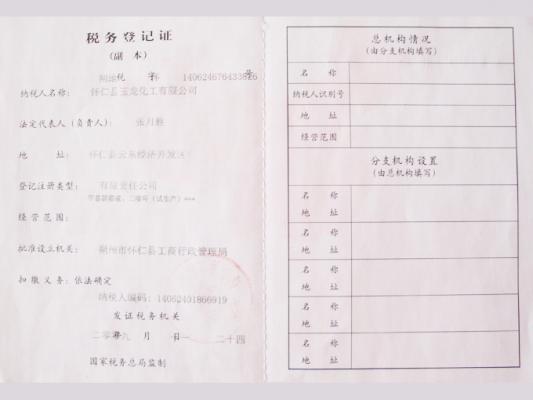 税务登记证
(副 本)
税 字 140624676433826 号
纳税人名称: 怀仁县玉龙化工有限公司
法定代表人(负责人): 张月雅
地 址: 怀仁县云东经济开发区
登记注册类型: 有限责任公司
经营范围:
批准设立机关: 朔州市怀仁县工商行政管理局
扣缴义务: 依法确定
纳税人编码: 14062401866919
发证税务机关
二零零九 月 二十四
国家税务总局监制
总机构情况
(由分支机构填写)
名 称
纳税人识别号
地 址
经营范围
分支机构设置
(由总机构填写)
名 称
地 址
名 称
地 址
名 称
地 址
名 称
地 址
名 称
地 址